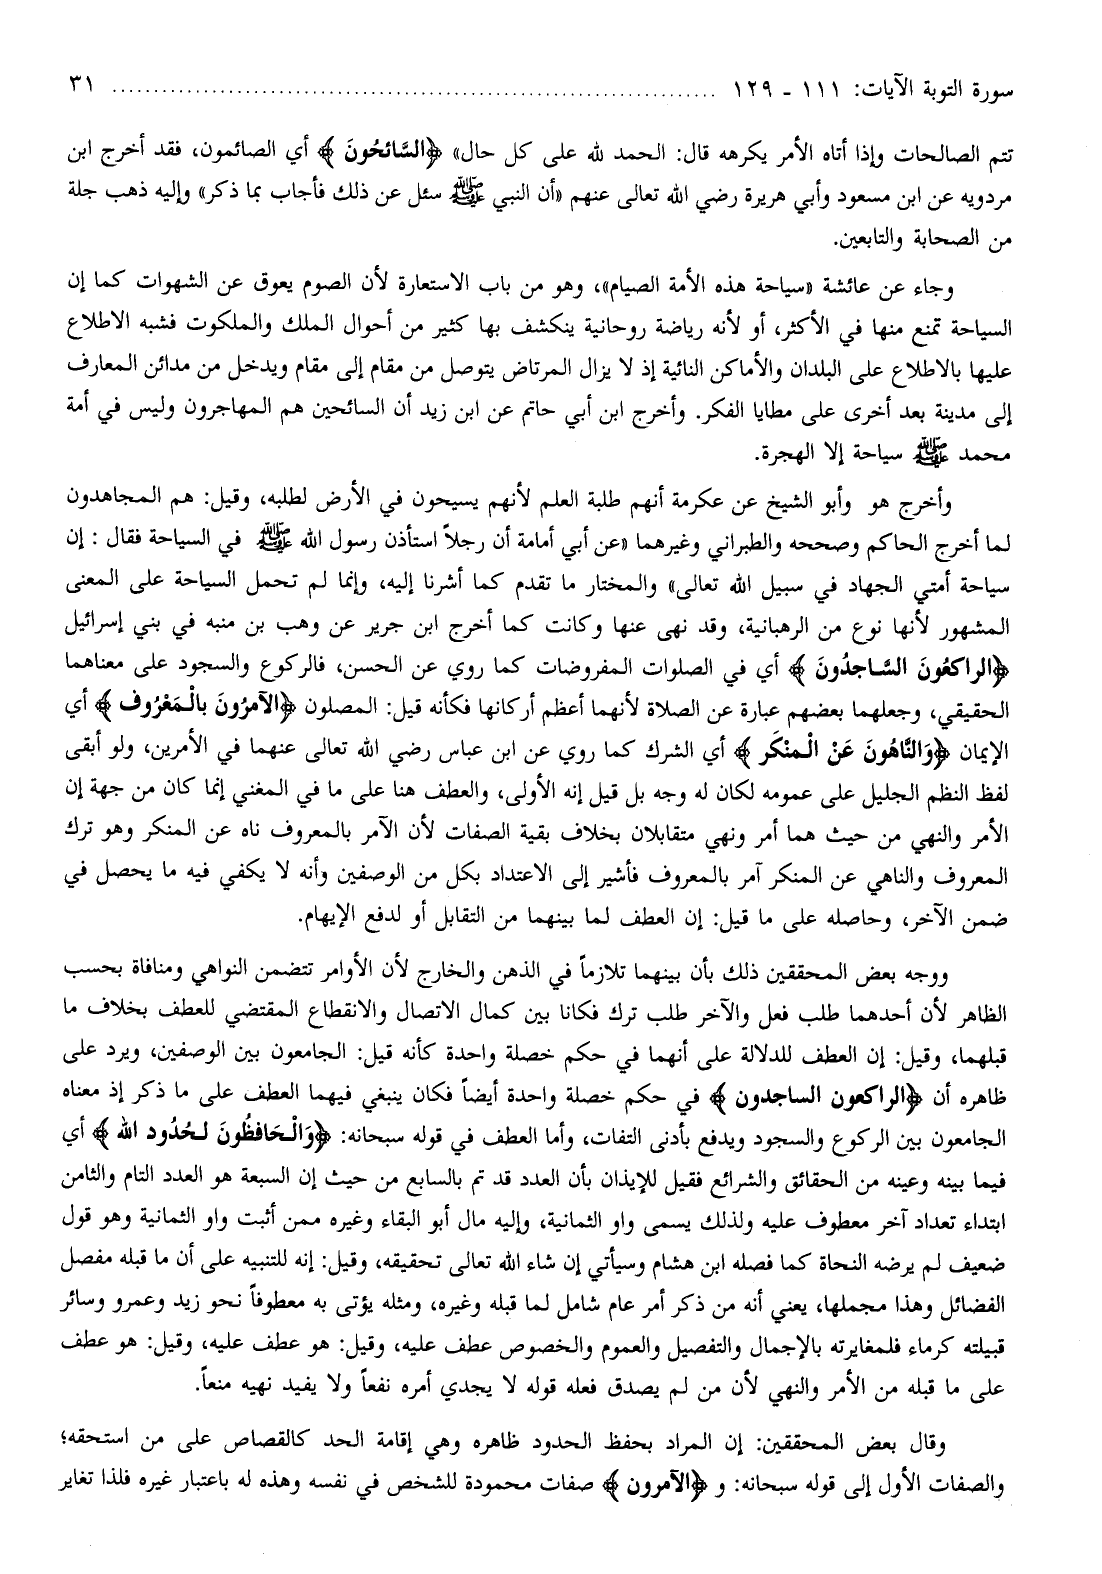 سورة التوبة الآيات: ١١١ ـ ١٢٩ ........................................................................ ٣١
تتم الصالحات وإذا أتاه الأمر يكرهه قال: الحمد لله على كل حال» ﴿السَّائحُونَ﴾ أي الصائمون، فقد أخرج ابن
مردويه عن ابن مسعود وأبي هريرة رضي الله تعالى عنهم «أن النبي ﷺ سئل عن ذلك فأجاب بما ذكر» وإليه ذهب جلة
من الصحابة والتابعين.
وجاء عن عائشة «سياحة هذه الأمة الصيام»، وهو من باب الاستعارة لأن الصوم يعوق عن الشهوات كما إن
السياحة تمنع منها في الأكثر، أو لأنه رياضة روحانية ينكشف بها كثير من أحوال الملك والملكوت فشبه الاطلاع
عليها بالاطلاع على البلدان والأماكن النائية إذ لا يزال المرتاض يتوصل من مقام إلى مقام ويدخل من مدائن المعارف
إلى مدينة بعد أخرى على مطايا الفكر. وأخرج ابن أبي حاتم عن ابن زيد أن السائحين هم المهاجرون وليس في أمة
محمد ﷺ سياحة إلا الهجرة.
وأخرج هو وأبو الشيخ عن عكرمة أنهم طلبة العلم لأنهم يسيحون في الأرض لطلبه، وقيل: هم المجاهدون
لما أخرج الحاكم وصححه والطبراني وغيرهما «عن أبي أمامة أن رجلاً استأذن رسول الله ﷺ في السياحة فقال : إن
سياحة أمتي الجهاد في سبيل الله تعالى» والمختار ما تقدم كما أشرنا إليه، وإنما لم تحمل السياحة على المعنى
المشهور لأنها نوع من الرهبانية، وقد نهى عنها وكانت كما أخرج ابن جرير عن وهب بن منبه في بني إسرائيل
﴿الراكعُونَ السَّاجدُونَ﴾ أي في الصلوات المفروضات كما روي عن الحسن، فالركوع والسجود على معناهما
الحقيقي، وجعلهما بعضهم عبارة عن الصلاة لأنهما أعظم أركانها فكأنه قيل: المصلون ﴿الآمرُونَ بالْمَعْرُوف﴾ أي
الإيمان ﴿وَالنَّاهُونَ عَنْ الْمنْكَر﴾ أي الشرك كما روي عن ابن عباس رضي الله تعالى عنهما في الأمرين، ولو أبقى
لفظ النظم الجليل على عمومه لكان له وجه بل قيل إنه الأولى، والعطف هنا على ما في المغني إنما كان من جهة إن
الأمر والنهي من حيث هما أمر ونهي متقابلان بخلاف بقية الصفات لأن الآمر بالمعروف ناه عن المنكر وهو ترك
المعروف والناهي عن المنكر آمر بالمعروف فأشير إلى الاعتداد بكل من الوصفين وأنه لا يكفي فيه ما يحصل في
ضمن الآخر، وحاصله على ما قيل: إن العطف لما بينهما من التقابل أو لدفع الإيهام.
ووجه بعض المحققين ذلك بأن بينهما تلازماً في الذهن والخارج لأن الأوامر تتضمن النواهي ومنافاة بحسب
الظاهر لأن أحدهما طلب فعل والآخر طلب ترك فكانا بين كمال الاتصال والانقطاع المقتضي للعطف بخلاف ما
قبلهما، وقيل: إن العطف للدلالة على أنهما في حكم خصلة واحدة كأنه قيل: الجامعون بين الوصفين، ويرد على
ظاهره أن ﴿الراكعون الساجدون﴾ في حكم خصلة واحدة أيضاً فكان ينبغي فيهما العطف على ما ذكر إذ معناه
الجامعون بين الركوع والسجود ويدفع بأدنى التفات، وأما العطف في قوله سبحانه: ﴿وَالْحَافظُونَ لحُدُود الله﴾ أي
فيما بينه وعينه من الحقائق والشرائع فقيل للإيذان بأن العدد قد تم بالسابع من حيث إن السبعة هو العدد التام والثامن
ابتداء تعداد آخر معطوف عليه ولذلك يسمى واو الثمانية، وإليه مال أبو البقاء وغيره ممن أثبت واو الثمانية وهو قول
ضعيف لم يرضه النحاة كما فصله ابن هشام وسيأتي إن شاء الله تعالى تحقيقه، وقيل: إنه للتنبيه على أن ما قبله مفصل
الفضائل وهذا مجملها، يعني أنه من ذكر أمر عام شامل لما قبله وغيره، ومثله يؤتى به معطوفاً نحو زيد وعمرو وسائر
قبيلته كرماء فلمغايرته بالإجمال والتفصيل والعموم والخصوص عطف عليه، وقيل: هو عطف عليه، وقيل: هو عطف
على ما قبله من الأمر والنهي لأن من لم يصدق فعله قوله لا يجدي أمره نفعاً ولا يفيد نهيه منعاً.
وقال بعض المحققين: إن المراد بحفظ الحدود ظاهره وهي إقامة الحد كالقصاص على من استحقه؛
والصفات الأول إلى قوله سبحانه: و ﴿الآمرون﴾ صفات محمودة للشخص في نفسه وهذه له باعتبار غيره فلذا تغاير